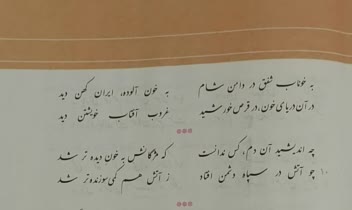 به خوناب شفق در دامن شام به خون آلوده، ایران کهن دید
در آن دریای خون، در قرص خورشید غروب آفتاب خویشتن دید
چه اندیشید آن دم، کس ندانست که مژگانش به خون دیده تر شد
۱۰ چو آتش در سپاه دشمن افتاد ز آتش هم کمی سوزنده‌تر شد